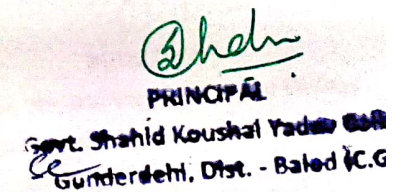 PRINCIPAL
Govt. Shahid Koushal Yadav
Gunderdehi, Dist. - Balod (C.G